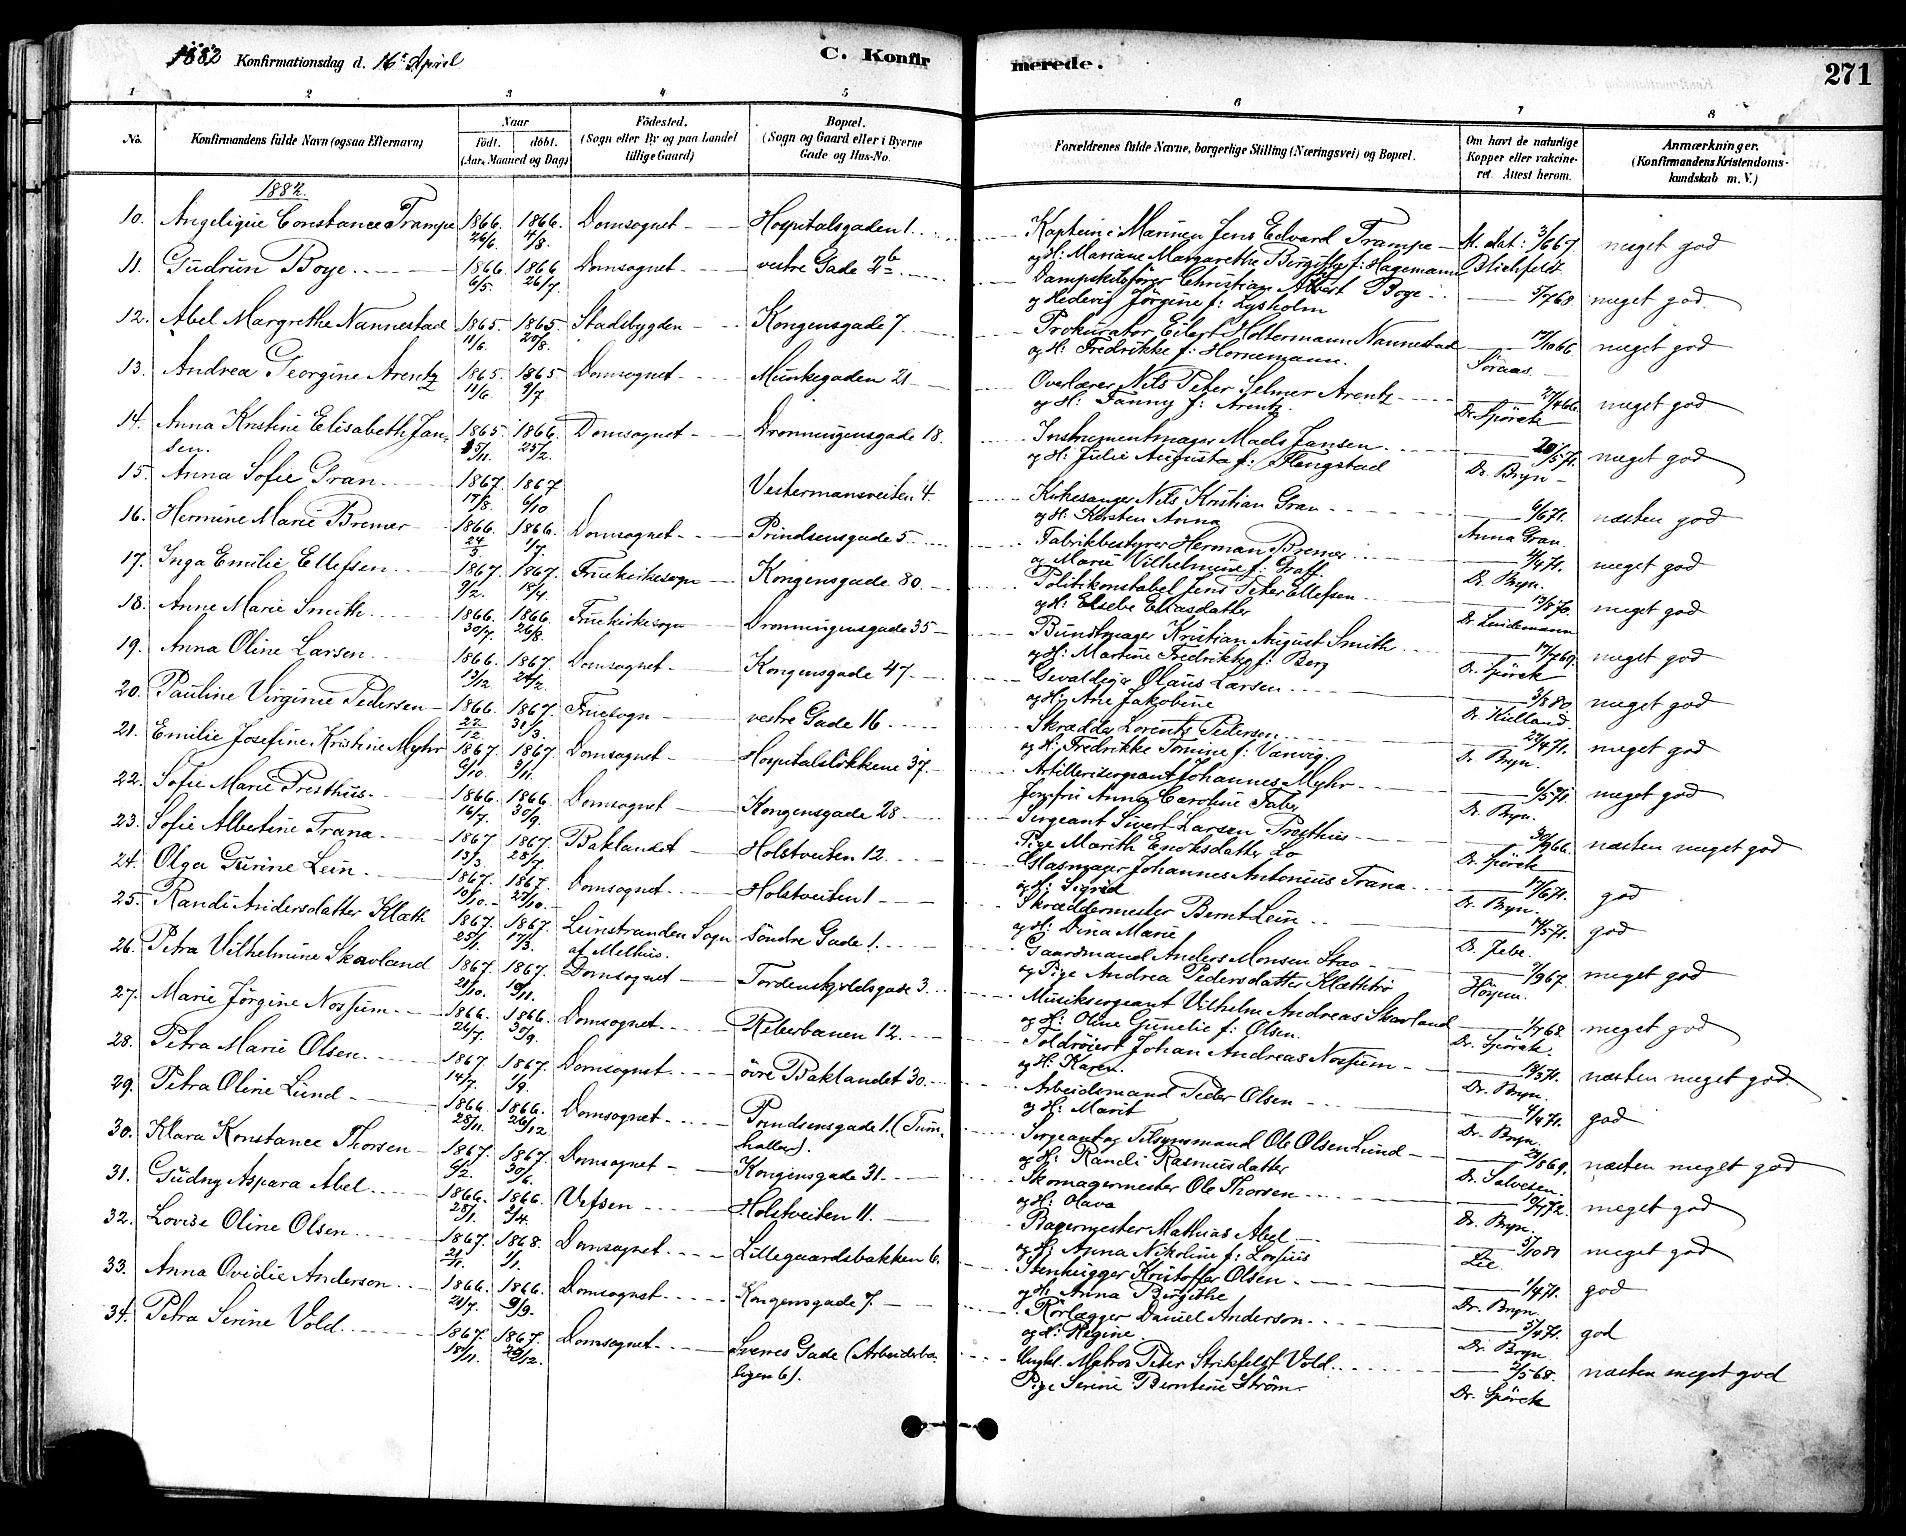 1882 Konfirmationsdag d. 16de April C. Konfirmerede. 271
1 2 3 4 5 6 7 8
No. Konfirmandens fulde Navn (ogsaa Efternavn) Naar födt. döbt. (Aar, Maaned og Dag) Födested. (Sogn eller By og paa Landet tillige Gaard) Bopæl. (Sogn og Gaard eller i Byerne Gade og Hus-No. Forældrenes fulde Navne, borgerlige Stilling (Næringsvei) og Bopæl. Om havt de naturlige Kopper eller vakcineret. Attest herom. Anmærkninger. (Konfirmandens Kristendomskundskab m. V.)
1882.
10. Angelique Constance Trampe 1866. 26/6. 1866. 4/8. Domsognet Hospitalsgaden 1. Kaptein i Marinen Jens Edvard Trampe At. dat: 3/6 67 meget god
og H. Mariane Margarethe Bergitte f: Hagemann Blichfeldt
11. Gudrun Boye 1866. 6/5. 1866 26/7. Domsognet vestre Gade 2b Dampskibsförer Christian Albert Boye 5/7 68 meget god.
og Hedevig Jörgine f: Lysholm
12. Abel Margrethe Nannestad 1865. 11/6. 1865. 20/8. Stadsbygden Kongensgade 7 Prokurator Eilert Holtermann Nannestad 17/10 66 meget god
og H: Fredrikke f: Hornemann. Söraas.
13. Andrea Georgine Arentz 1865. 11/6. 1865 9/7. Domsognet Munkegaden 21 Overlærer Nils Peter Selmer Arentz 27/4 66 meget god
og H: Fanny f: Arentz. Dr. Spörck
14. Anna Kristine Elisabeth Jansen. 1865. 25/11. 1866. 25/2. Domsognet Dronningensgade 18. Instrumentmager Maels Jansen 20/5 71. meget god
og H: Julie Augusta f: Flengstad Dr. Bryn
15. Anna Sofie Gran 1867. 17/8. 1867 6/10 Vestermansveiten 4. Kirkesanger Nils Kristian Gran 6/6 71. næsten god
og H: Kersten Anna Anna Gran.
16. Hermine Marie Bremer 1866. 24/5 1866. 1/7. Domsognet Prindsensgade 5 Fabrikbestyrer Herman Bremer 4/4 71. meget god
og Marie Vilhelmine f: Graff. Dr. Bryn.
17. Inga Emilie Ellefsen 1867. 9/2. 1867. 18/4. Fruekirkesogn Kongensgade 80. Politikonstabel Jens Peter Ellefsen 13/8 70 meget god
og H: Elsebe Eliasdatter Dr. Lindemann
18. Anne Marie Smith 1866. 30/7. 1866. 26/8. Fruekirkesogn Dronningensgade 35 Bundtmager Kristian August Smith 17/7 69. meget god
og H: Martine Fredrikke f: Berg Dr. Spörck
19. Anna Oline Larsen 1866. 13/12. 1867. 24/2. Domsognet Kongensgade 47 Gevaldiger Olaus Larsen 3/8 80 meget god
og H: Ane Jakobine Dr. Kielland
20. Pauline Virginie Pedersen 1866. 22/12. 1867. 31/3. Fruesogn vestre Gade 16 Skrædder Lorents Pedersen 27/4 71. meget god
og H: Fredrikke Tomine f: Vanvig. Dr. Bryn.
21. Emilie Josefine Kristine Myhr 1867. 6/10. 1867. 3/11. Domsognet Hospitalslökkene 37. Artillerisergeant Johannes Myhr 6/5 71. meget god
Jomfru Anna Caroline Faber Dr. Bryn.
22. Sofie Marie Presthus 1866. 16/7. 1866. 30/9. Domsognet Kongensgade 28 Sergeant Sivert Larsen Presthus 30/9 66 næsten meget god
Pige Marith Enoksdatter Lo Dr. Spörck
23. Sofie Albertine Trana 1867 13/3. 1867. 28/7. Baklandet Holstveiten 12 Glasmager Johannes Antonius Trana 17/6 71. god
og H: Sigrid Dr. Bryn.
24. Olga Gurine Lein 1867. 10/10. 1867. 27/10 Domsognet Holstveiten 1 Skræddermester Bernt Lein 14/5 71. god
og H: Dina Marie Dr. Jebe.
25. Randi Andersdatter Klæth 1867. 25/1. 1867. 17/3. Leinstranden Sogn af Melhus. söndre Gade 1. Gaardmand Anders Monsen Stav 7/9 67. meget god
og Pige Andrea Pedersdatter Klæthtrö Hösum.
26. Petra Vilhelmine Skavland 1867. 21/10. 1867. 10/11. Domsognet Tordenskjoldsgade 3. Musiksergeant Vilhelm Andreas Skavland 1/7 68. meget god
og H: Oline Gunelie f: Olsen. Dr. Spörck.
27. Marie Jörgine Nossum 1866. 26/7. 1866. 30/9. Domsognet Reberbanen 12. Toldröiert Johan Andreas Nossum 18/3 71. næsten meget god.
og H: Karen Dr. Bryn.
28. Petra Marie Olsen 1867 14/7. 1867. 1/9. Domsognet övre Baklandet 30. Arbeidsmand Peder Olsen 4/4 71. god
og H: Marit Dr. Bryn.
29. Petra Oline Lund 1866. 28/11. 1866. 26/12. Domsognet Prindsensgade 1. (Turnhallen). Sergeant og Tilsynsmand Ole Olsen Lund 24/8 69. næsten meget god
og H: Randi Rasmusdatter Dr. Salvesen.
30. Klara Konstance Thorsen 1867. 6/2. 1867 30/6. Domsognet Kongensgade 31. Skomagermester Ole Thorsen 10/7 72. meget god
og H: Olava Dr. Bryn.
31. Gudny Aspara Abel 1866. 28/1. 1866. 2/4. Vefsen Holstveiten 11. Bagermester Mathias Abel 5/10 81 meget god
og H: Anna Nikoline f: Lorius Lie
32. Lovise Oline Olsen 1867. 21/11. 1868. 1/1. Domsognet Lillegaardsbakken 6. Stenhugger Kristoffer Olsen 1/4 71. god
og H: Anna Birgithe Dr. Bryn.
33. Anna Ovidie Anderson 1866. 21/7. 1866. 9/9. Domsognet Kongensgade 7. Rörlægger Daniel Anderson 5/4 71. god
og H: Regine. Dr. Bryn.
34. Petra Serine Vold 1867. 18/11. 1867. 29/12. Domsognet Sverres Gade (Arbeiderboligen 6). Ungkl. Matros Peter Strikfeldt Vold 2/5 68. næsten meget god
Pige Serine Berntine Ström Dr. Spörck